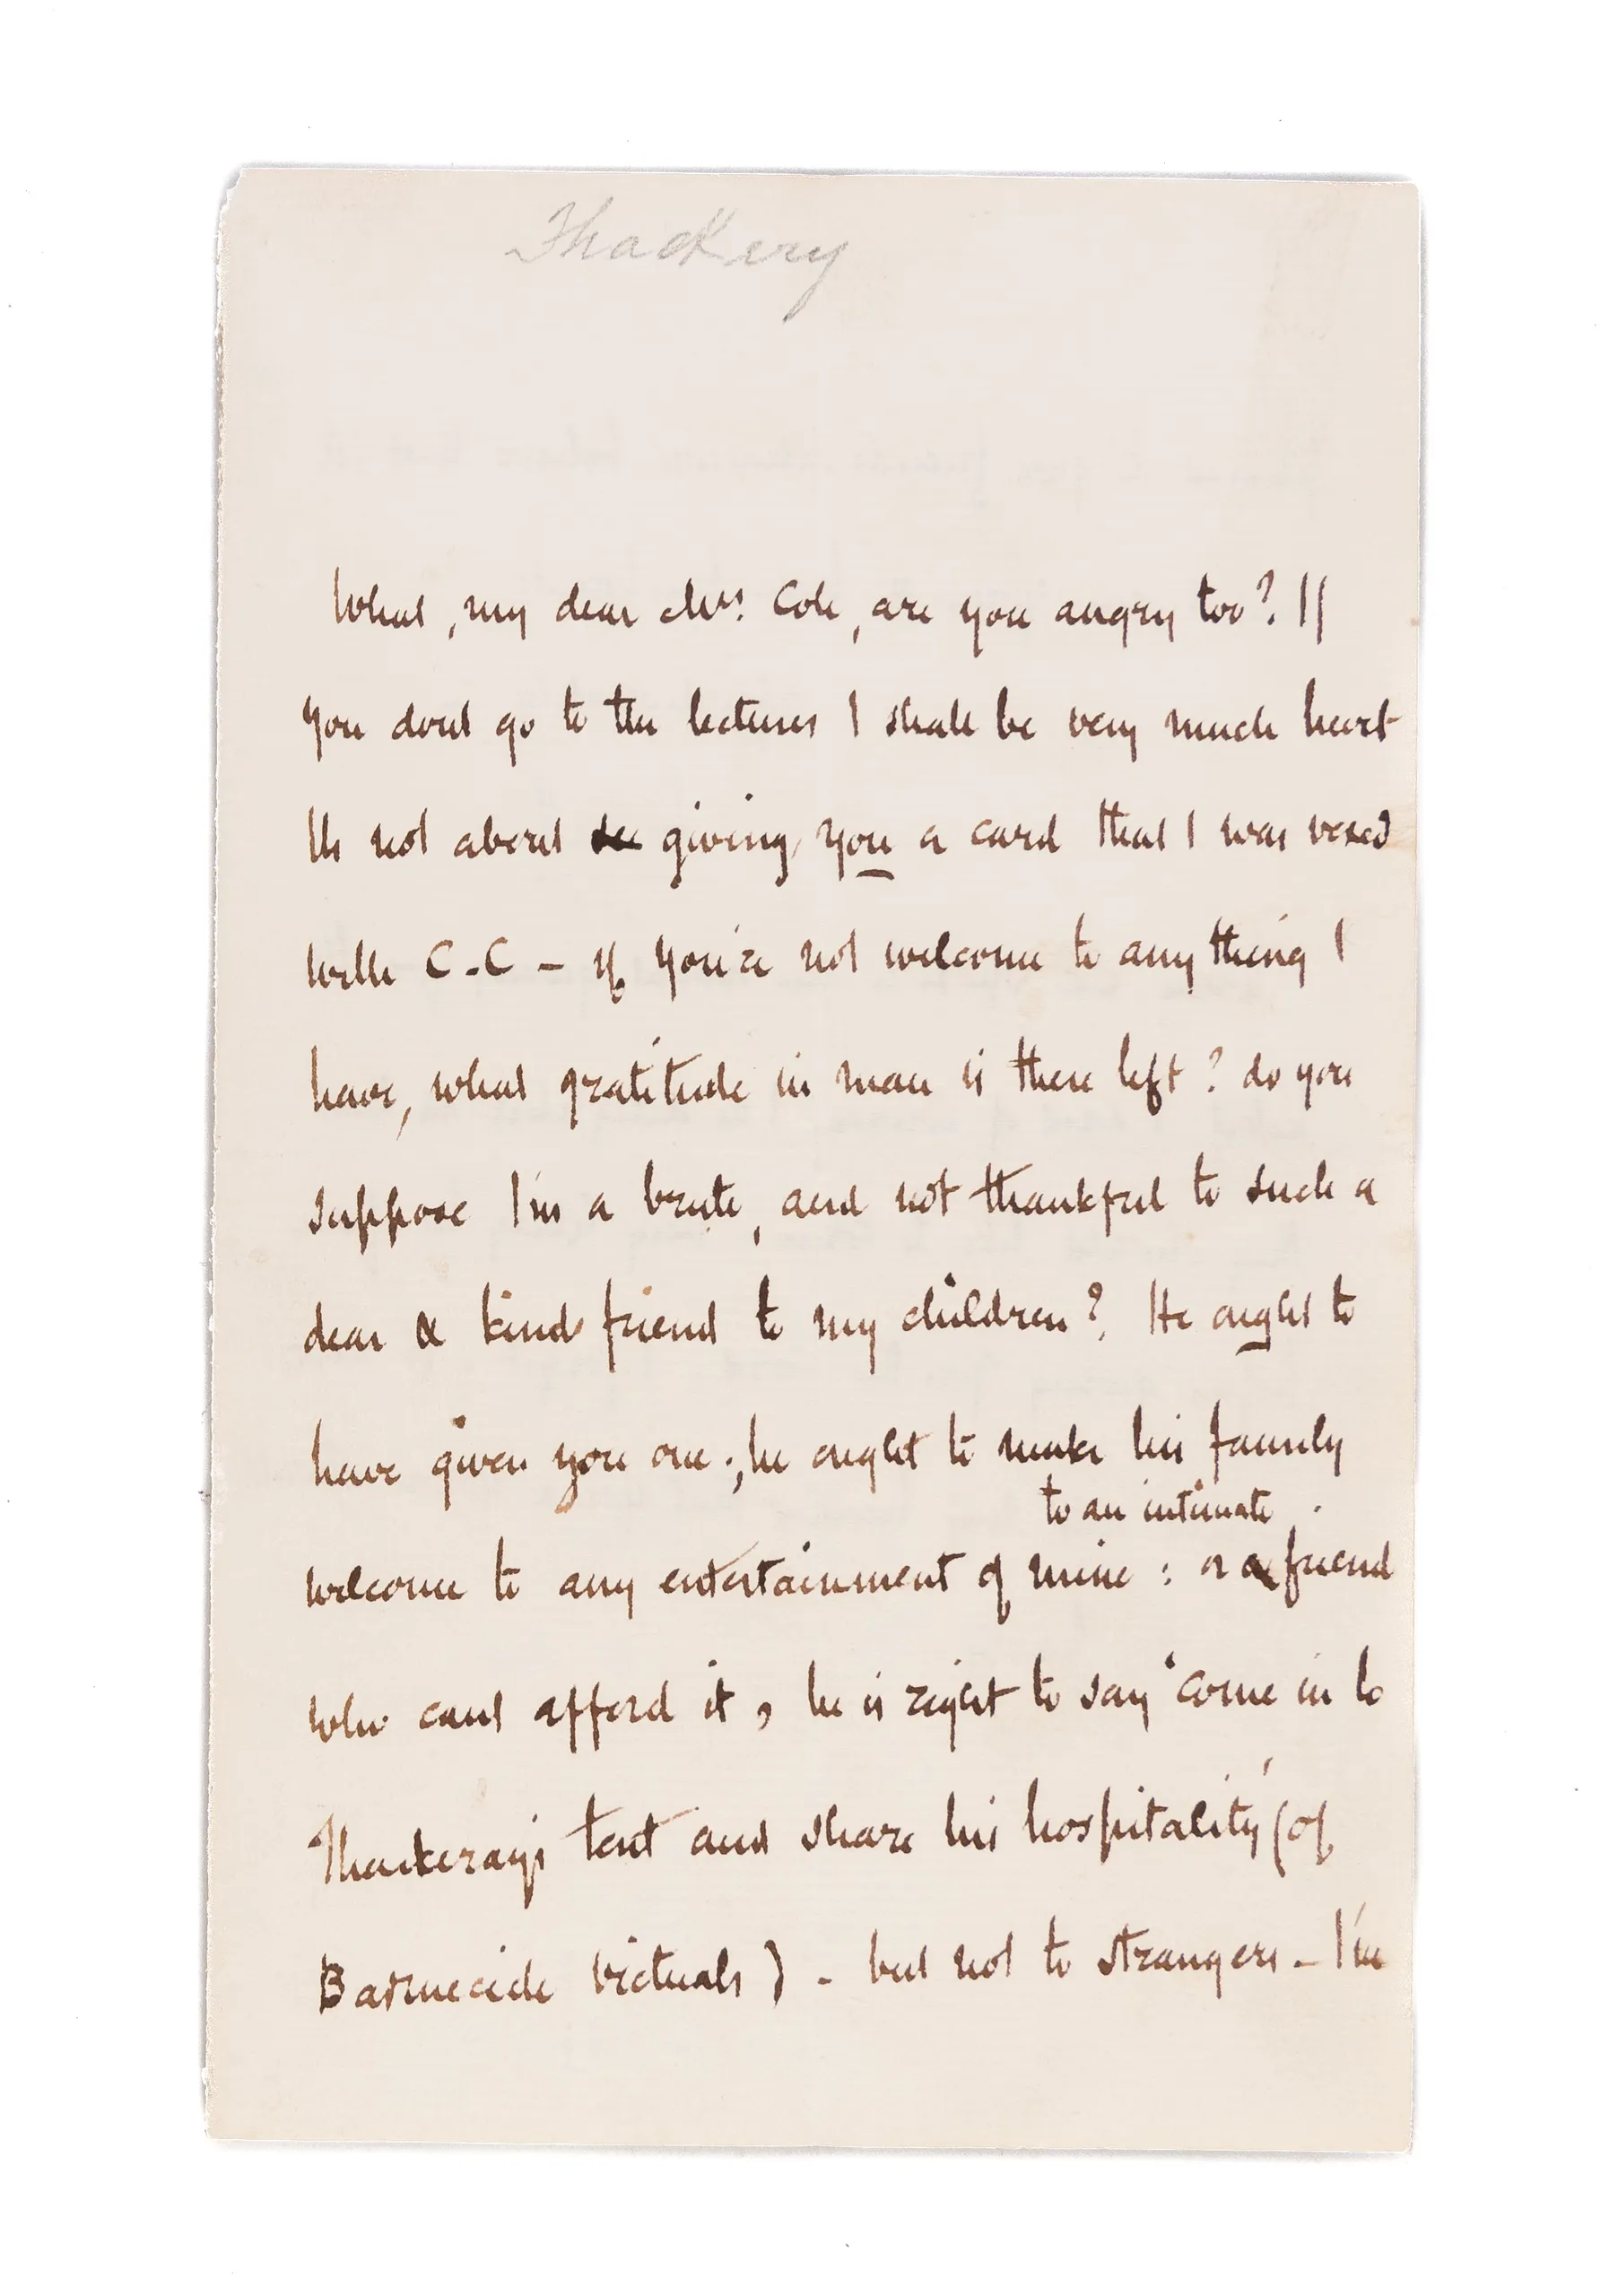 Thackery
What, my dear Mrs. Cole, are you angry too? If
you dont go to the lectures I shall be very much hurt
Its not about giving you a card that I was vexed
with C-C - if you're not welcome to anything I
have, what gratitude in man is there left? do you
suppose I'm a brute, and not thankful to such a
dear & kind friend to my children? He ought to
have given you one; he ought to make his family
to an intimate
welcome to any entertainment of mine: or friend
who cant afford it, he is right to say 'come in to
Thackerays tent and share his hospitality' (of
Barmecide victuals) - but not to strangers - I'm